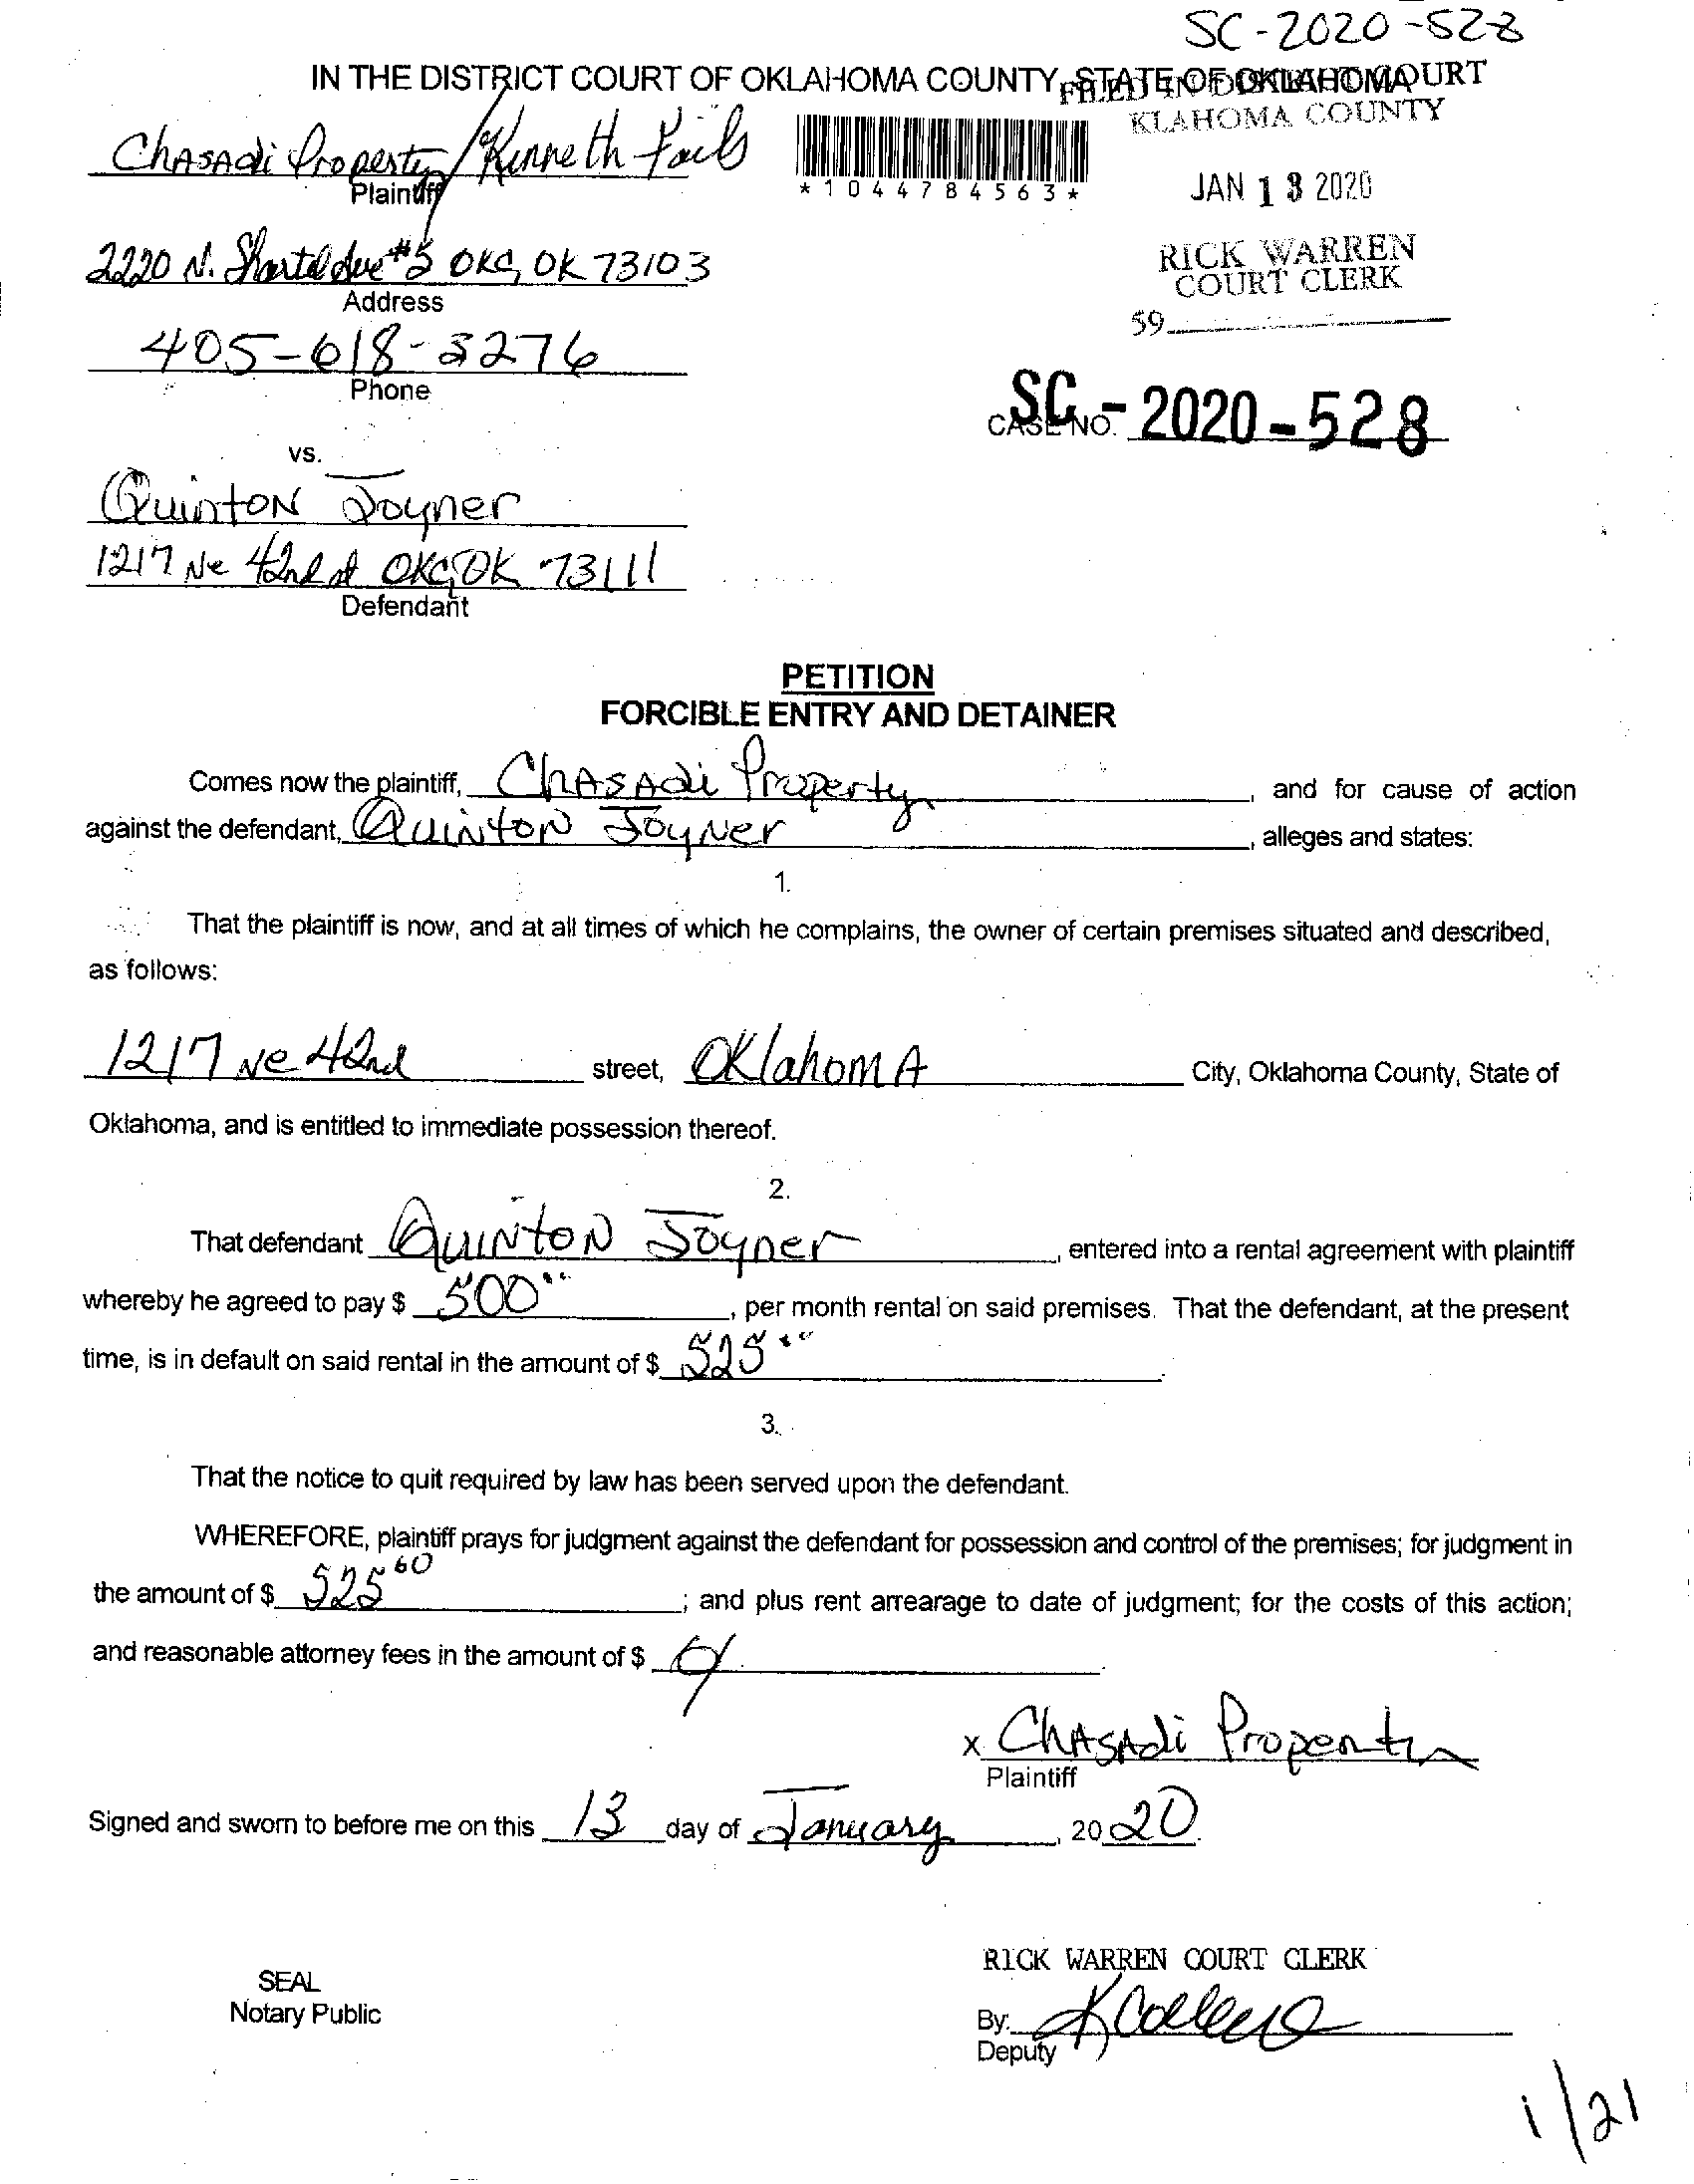 SC-2020-528
IN THE DISTRICT COURT OF OKLAHOMA COUNTY, STATE OF OKLAHOMA
FILED IN DISTRICT COURT
OKLAHOMA COUNTY
Chasadi Property/Kenneth Fails
Plaintiff
*1044784563*
JAN 13 2020
2220 N. Shartel Ave #5 OKC, OK 73103
Address
RICK WARREN
COURT CLERK
59
405-618-3276
Phone
CASE NO. SC-2020-528
vs.
Quinton Joyner
1217 Ne 42nd st OKC, OK 73111
Defendant
PETITION
FORCIBLE ENTRY AND DETAINER
Comes now the plaintiff, Chasadi Property, and for cause of action
against the defendant, Quinton Joyner, alleges and states:
1.
That the plaintiff is now, and at all times of which he complains, the owner of certain premises situated and described,
as follows:
1217 Ne 42nd street, Oklahoma City, Oklahoma County, State of
Oklahoma, and is entitled to immediate possession thereof.
2.
That defendant Quinton Joyner, entered into a rental agreement with plaintiff
whereby he agreed to pay $ 500.00, per month rental on said premises. That the defendant, at the present
time, is in default on said rental in the amount of $ 525.00.
3.
That the notice to quit required by law has been served upon the defendant.
WHEREFORE, plaintiff prays for judgment against the defendant for possession and control of the premises; for judgment in
the amount of $ 525 60; and plus rent arrearage to date of judgment; for the costs of this action;
and reasonable attorney fees in the amount of $
x Chasadi Property
Plaintiff
Signed and sworn to before me on this 13 day of January, 2020.
RICK WARREN COURT CLERK
SEAL
Notary Public
By:
Deputy
1/21